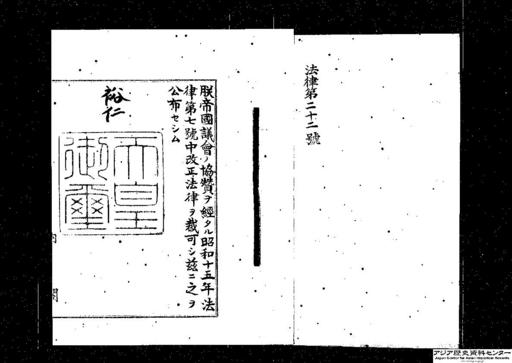 法律第二十二號
朕帝國議會ノ協贊ヲ經タル昭和十五年法
律第七號中改正法律ヲ裁可シ茲ニ之ヲ
公布セシム
裕仁
天皇
御璽
アジア歴史資料センター
Japan Center for Asian Historical Records